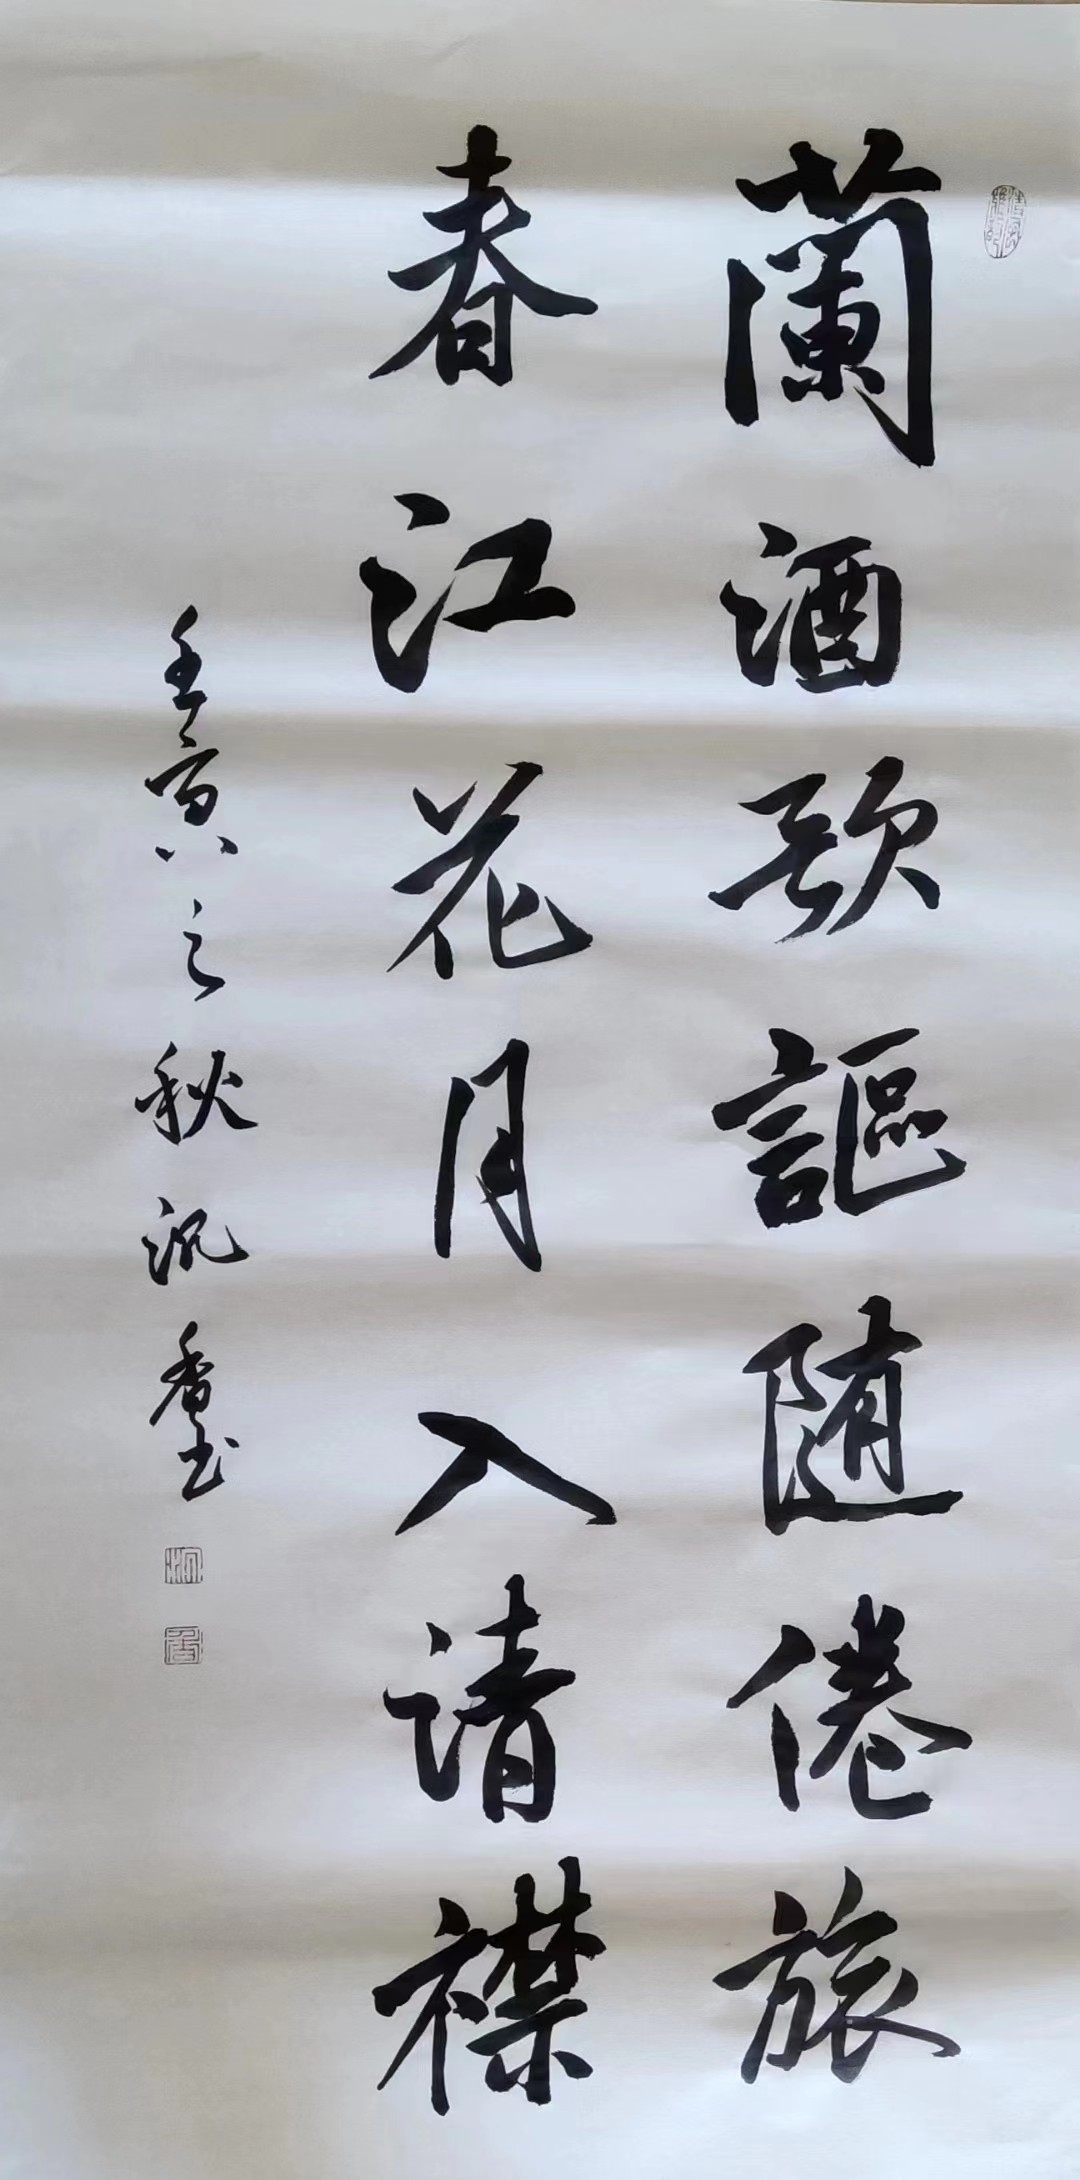 蘭酒歌謳随倦旅
春江花月入请襟
壬寅之秋沉香书